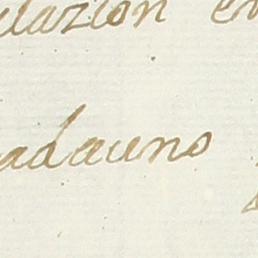 lazion en
adauno